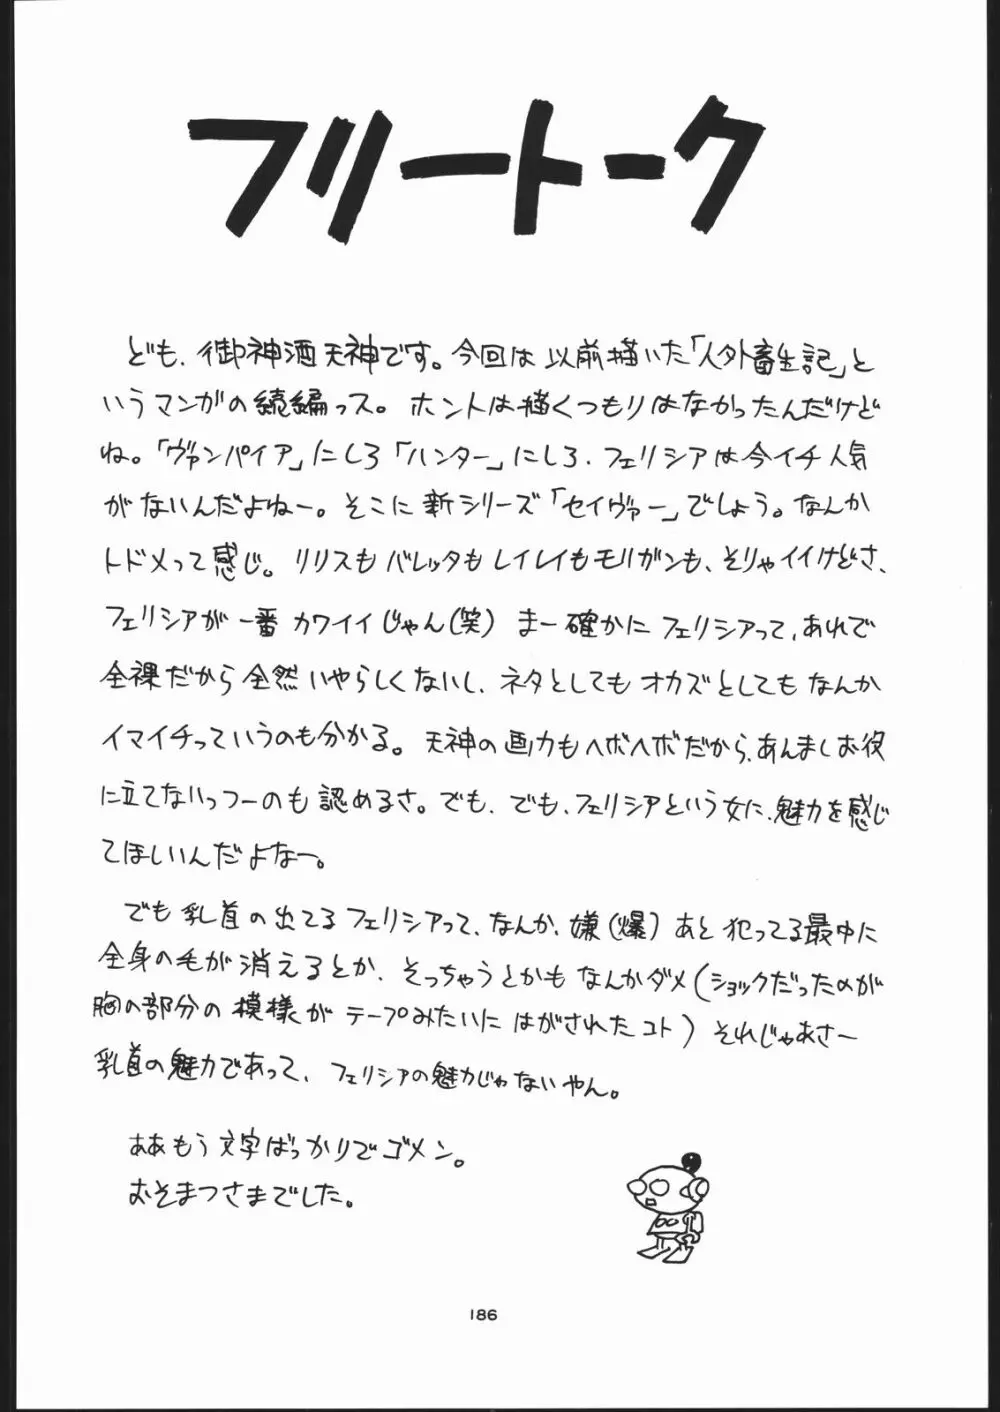 フリートーク
ども、御神酒天神です。今回は以前描いた「人外畜生記」と
いうマンガの続編っス。ホントは描くつもりはなかったんだけど
ね。「ヴァンパイア」にしろ「ハンター」にしろ、フェリシアは今イチ人気
がないんだよねー。そこに新シリーズ「セイヴァー」でしょう。なんか
トドメって感じ。リリスもバレッタもレイレイもモリガンも、そりゃイイけどさ、
フェリシアが一番カワイイじゃん(笑) まー確かにフェリシアって、あれで
全裸だから全然いやらしくないし、ネタとしてもオカズとしてもなんか
イマイチっていうのも分かる。天神の画力もヘボヘボだから、あんましお役
に立てないっつーのも認めるさ。でも、でも、フェリシアという女に、魅力を感じ
てほしいんだよなー。
でも乳首の出てるフェリシアって、なんか、嫌(爆) あと犯ってる最中に
全身の毛が消えるとか、そっちゃうとかもなんかダメ(ショックだったのが
胸の部分の模様がテープみたいにはがされたコト) それじゃあさー
乳首の魅力であって、フェリシアの魅力じゃないやん。
ああもう文字ばっかりでゴメン。
おそまつさまでした。
186